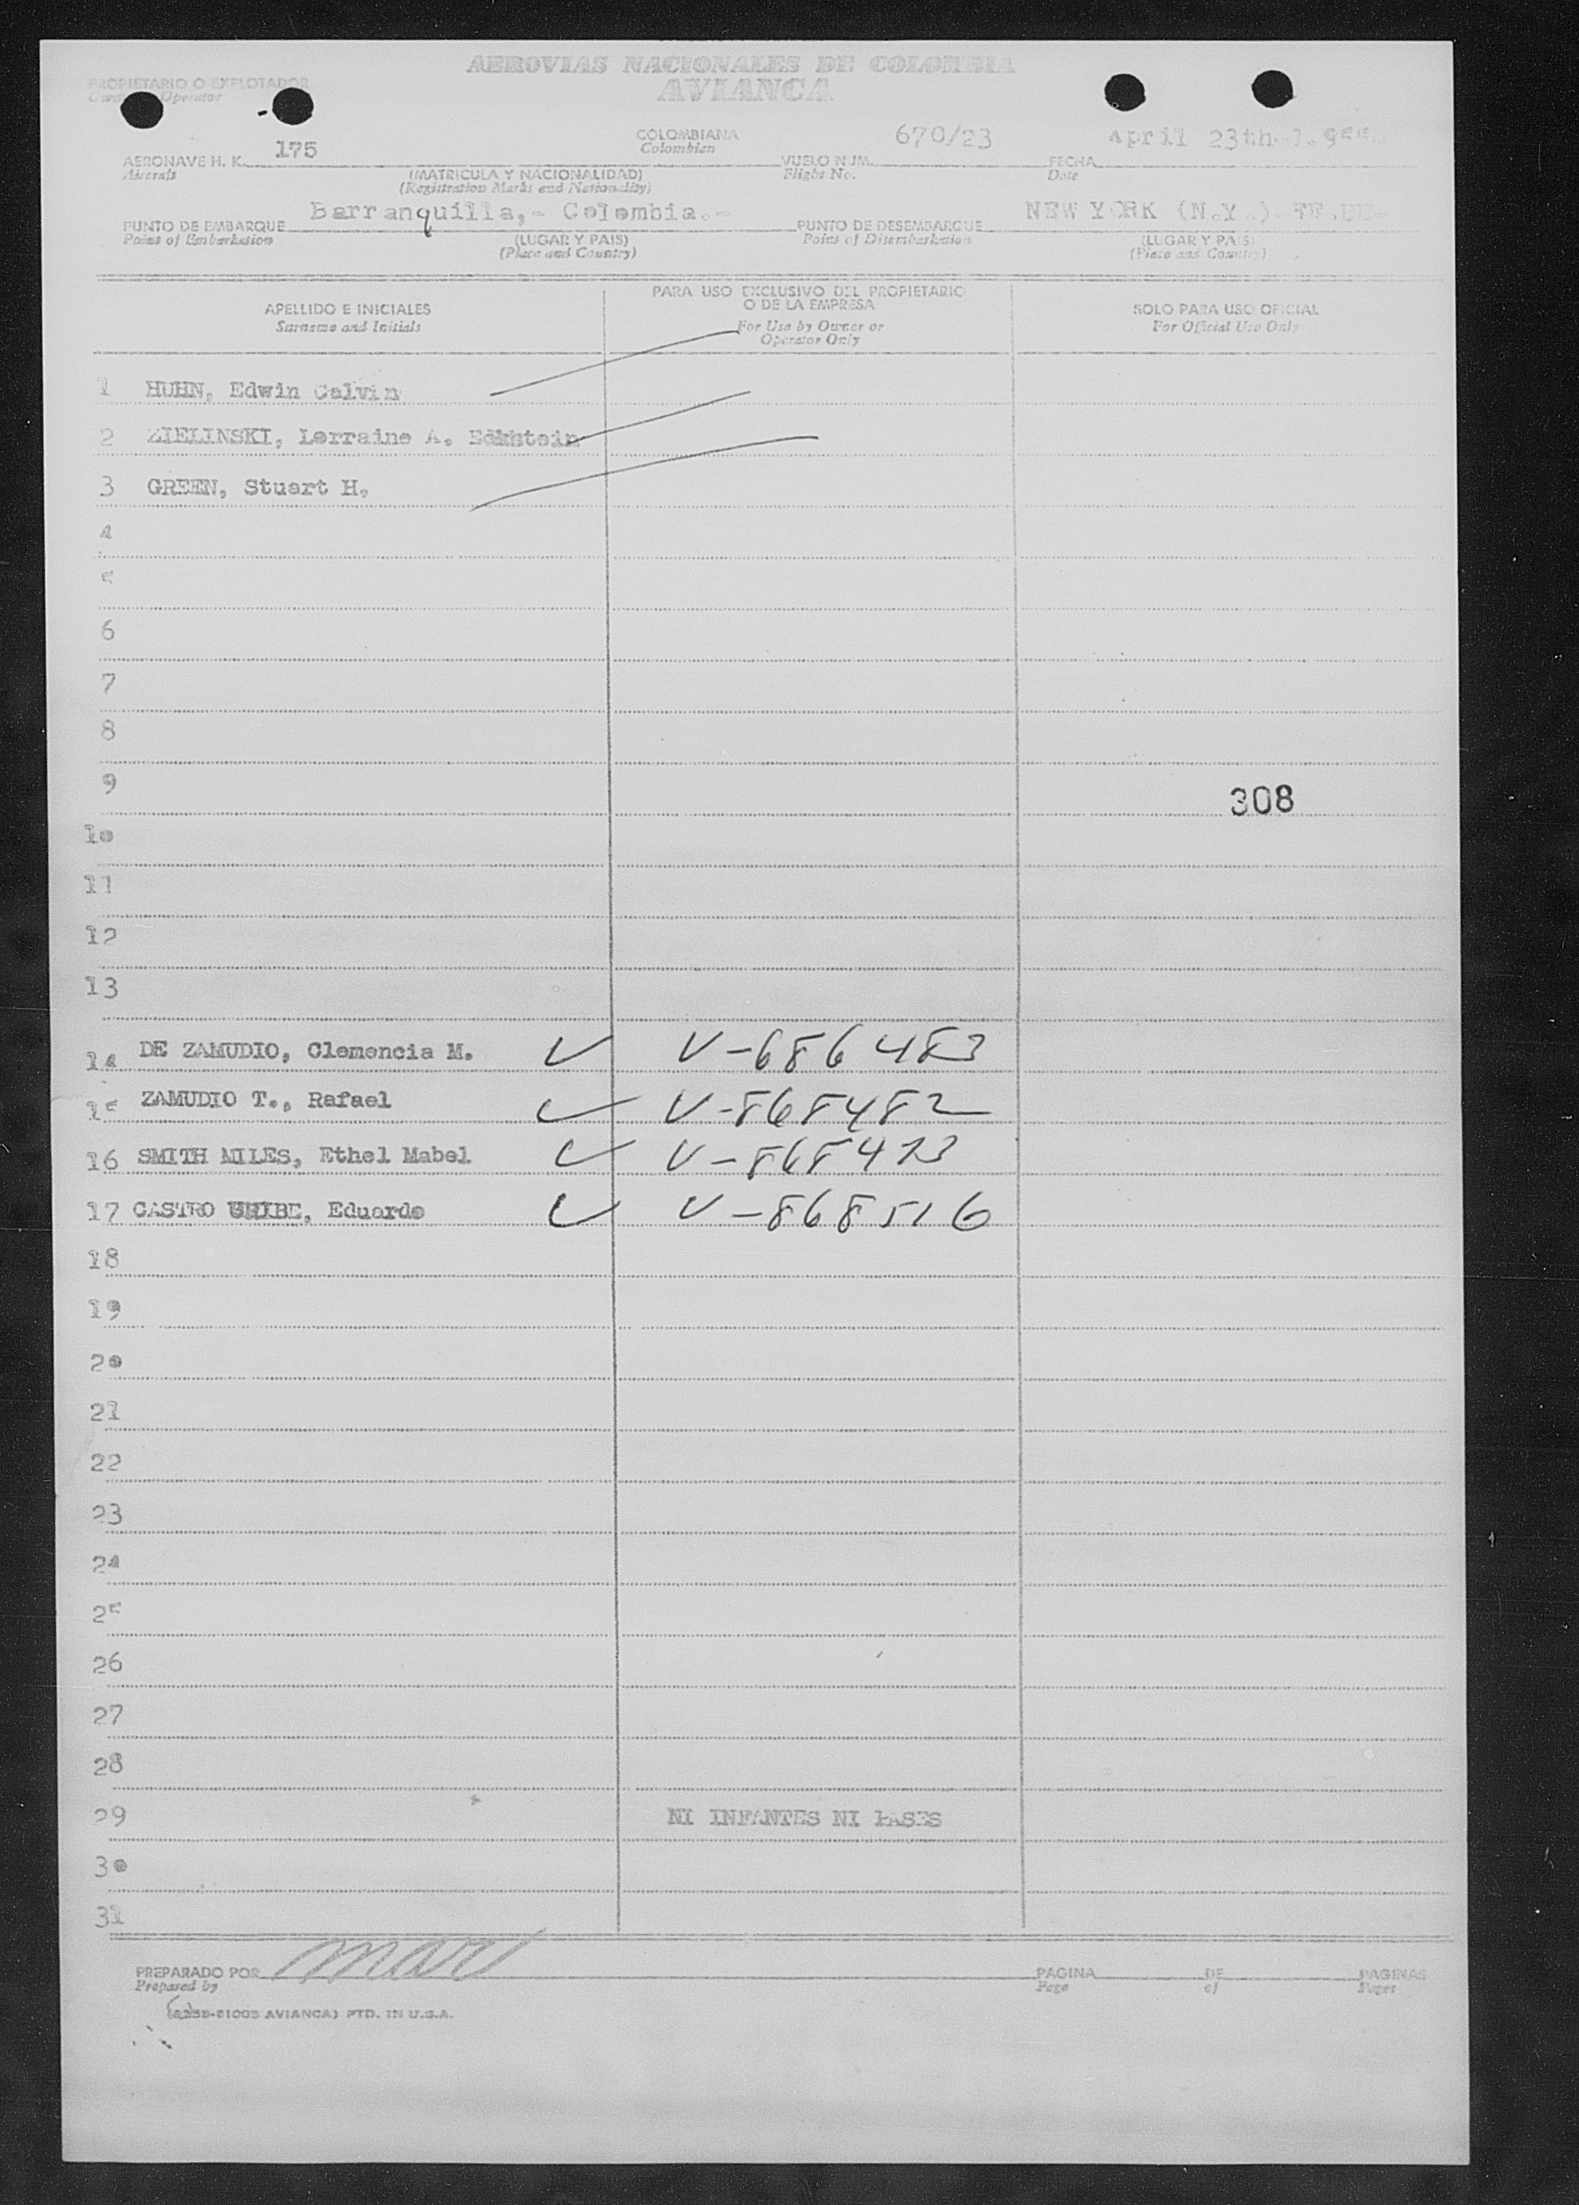 AEROVIAS NACIONALES DE COLOMBIA
AVIANCA
PROPIETARIO O EXPLOTADOR
Operator
AERONAVE H. K. 175 COLOMBIANA VUELO NUM. 670/23 FECHA April 23th
Aircraft Colombian Flight No. Date
(MATRICULA Y NACIONALIDAD)
(Registration Marks and Nationality)
PUNTO DE EMBARQUE Barranquilla,- Colombia.- PUNTO DE DESEMBARQUE NEW YORK (N.Y.)
Point of Embarkation (LUGAR Y PAIS) Point of Disembarkation (LUGAR Y PAIS)
(Place and Country) (Place and Country)
APELLIDO E INICIALES
Surname and Initials
PARA USO EXCLUSIVO DEL PROPIETARIO
O DE LA EMPRESA
For Use by Owner or
Operator Only
SOLO PARA USO OFICIAL
For Official Use Only
1 HUHN, Edwin Calvin
2 ZIELINSKI, Lorraine A. Eckstein
3 GREEN, Stuart H.
4
5
6
7
8
9 308
10
11
12
13
14 DE ZAMUDIO, Clemencia M. V-686483
15 ZAMUDIO T., Rafael V-868482
16 SMITH MILES, Ethel Mabel
17 CASTRO URIBE, Eduardo V-868516
18
19
20
21
22
23
24
25
26
27
28
29 NI INFANTES NI PASES
30
31
PREPARADO POR PAGINA DE PAGINAS
Prepared by Page of Pages
AVIANCA) PTD. IN U.S.A.